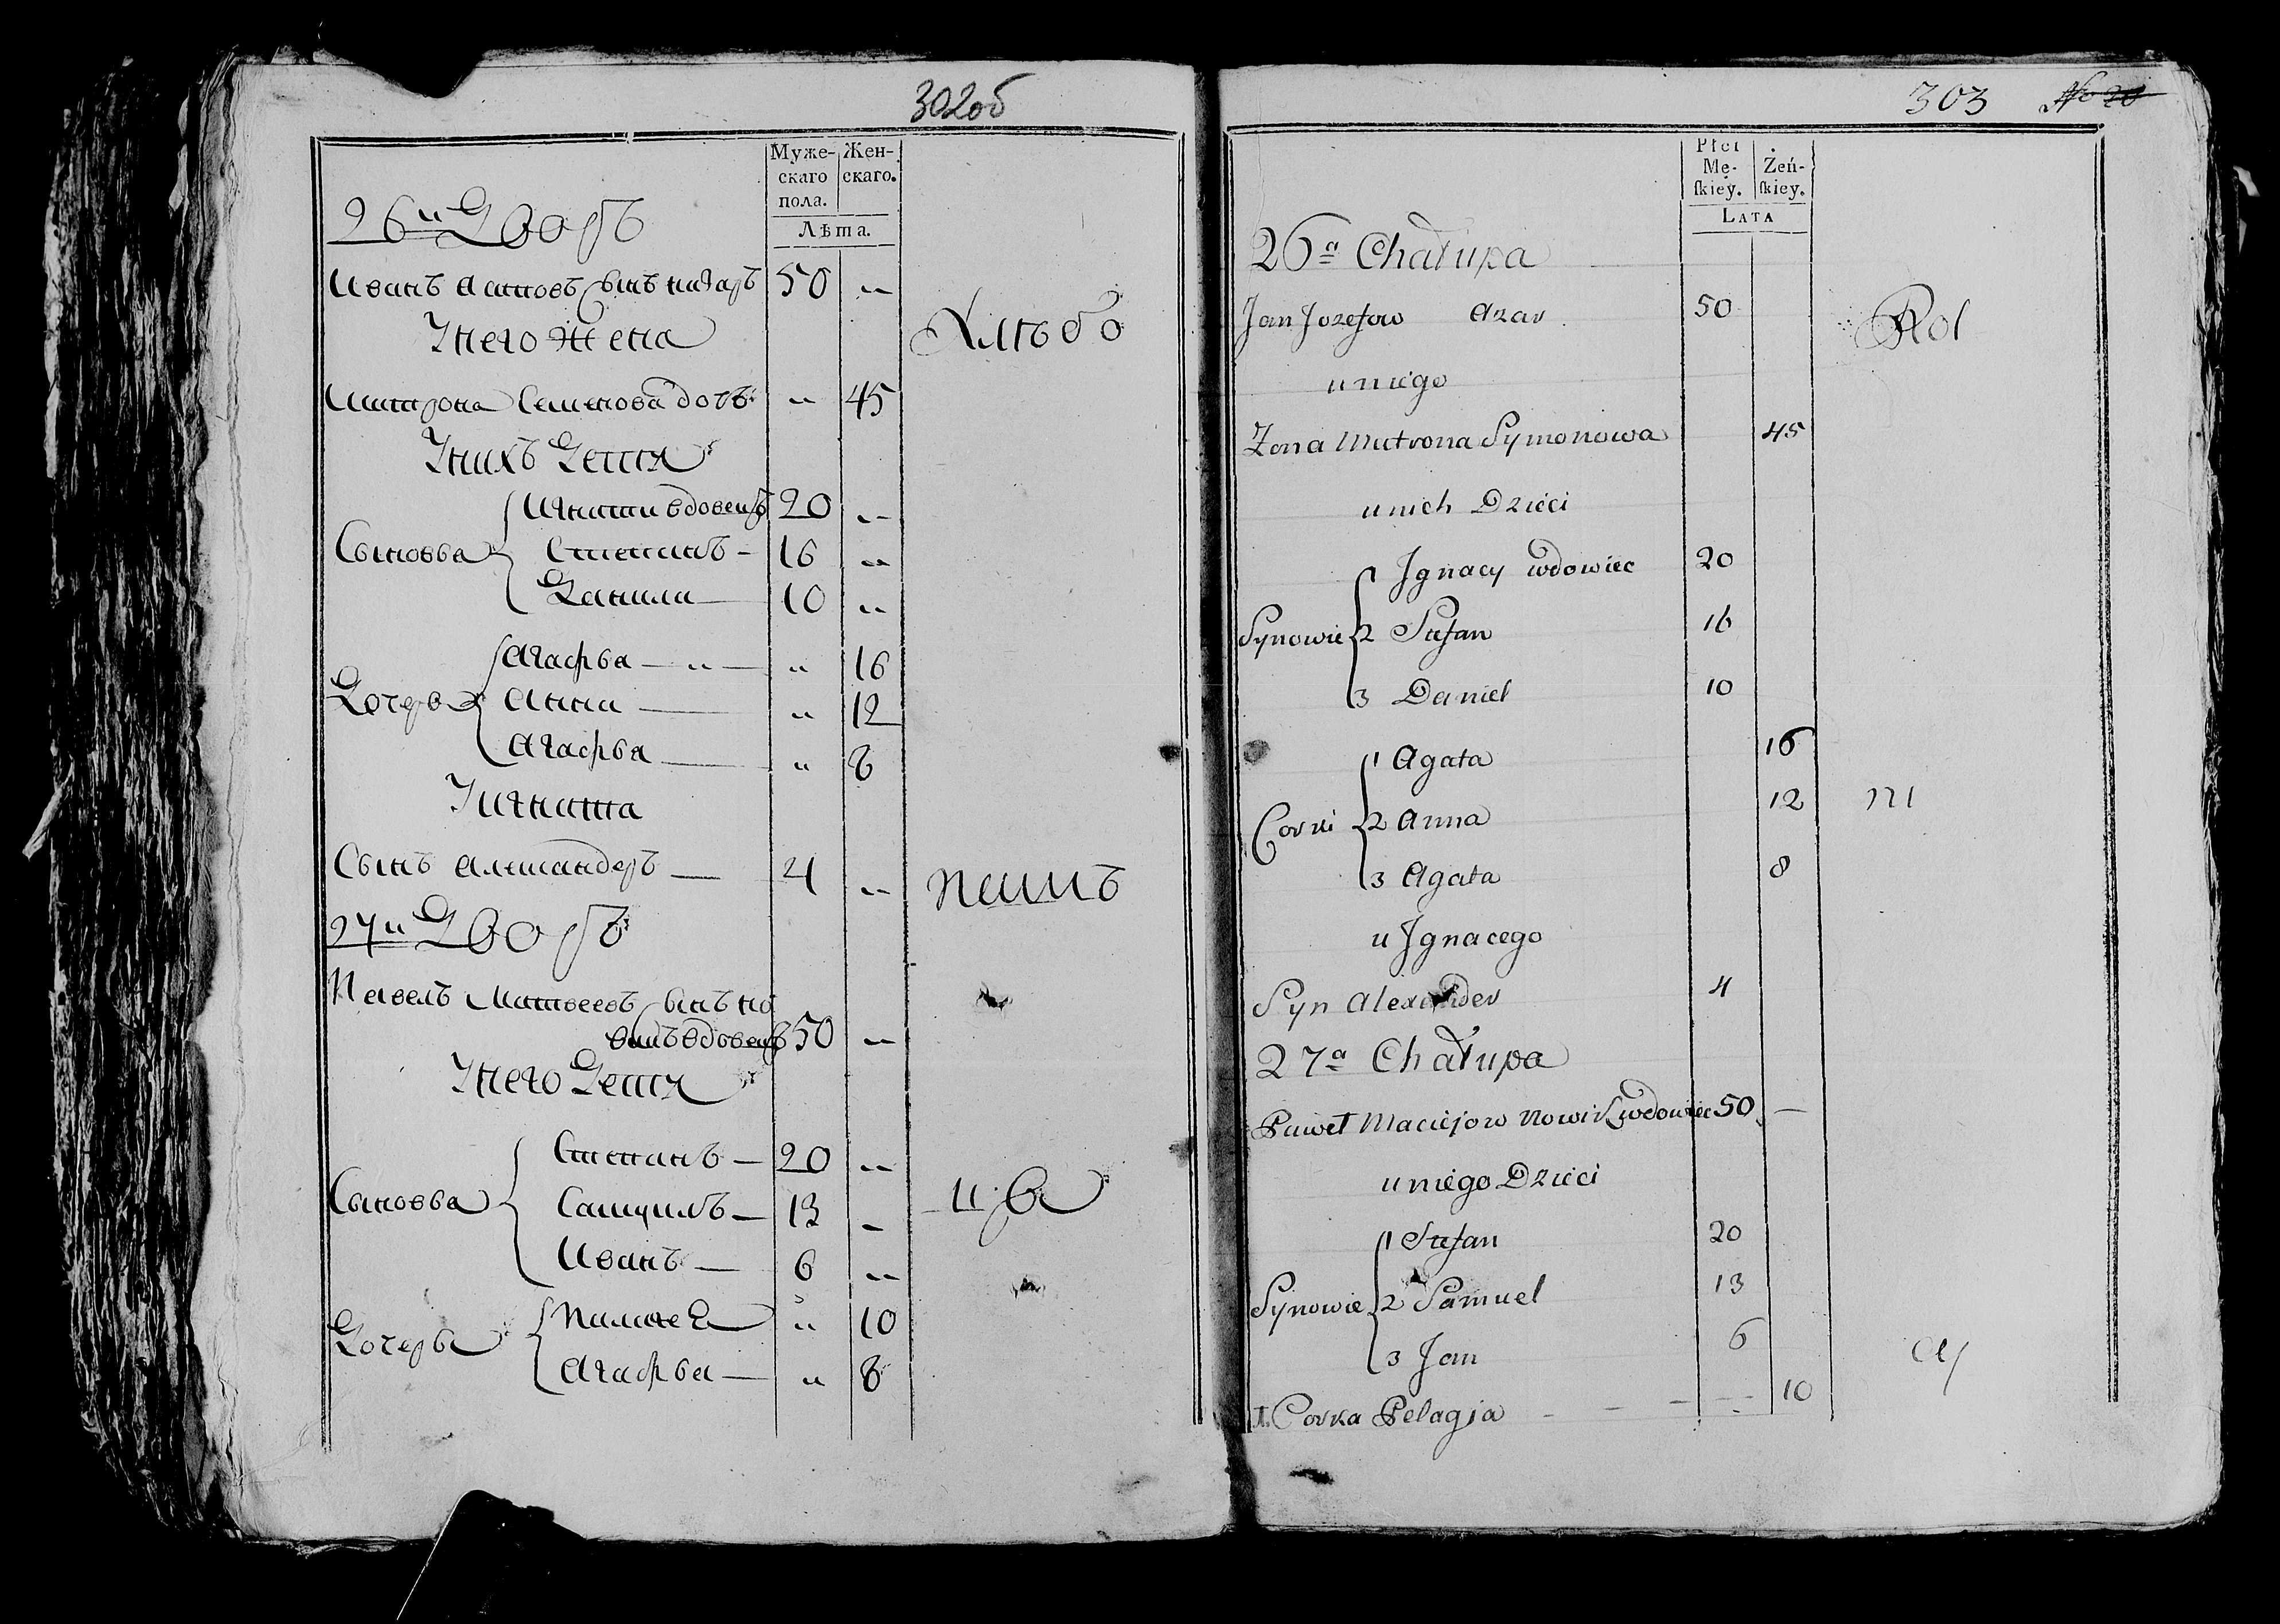 302об
Муже-
скаго
пола.
Жен-
скаго.
Лѣта.
26й Дворъ
Иванъ сынъ 50 „
Унего Жена
Семенова дочь „ 45
Унихъ Дети
Сыновья
Игнати вдовецъ 20 „
Степанъ 16 „
Данила 10 „
Дочеря
Агафья „ 16
Анна „ 12
Агафья „ 8
Уигната
Сынъ Александеръ 4 „
27й Дворъ
Павелъ Матвеевъ сынъ но
викъ вдовецъ 50 „
Унего Дети
Сыновья
Степанъ 20 „
Самуилъ 13 „
Иванъ 6 „
Дочеры
Палагея „ 10
Агафья „ 8
Хлѣбо
пашъ
ц.ы
303 № 20
Płci
Mę-
skiéy.
Żeń-
skiey.
LATA
26a Chałupa
Jan Jozefow Azar 50
u niego
Zona Mutrona Symonowa 45
u nich Dzieci
Synowie
Jgnacy wdowiec 20
2 Stefan 16
3 Daniel 10
Corki
1 Agata 16
2 Anna 12
3 Agata 8
u Jgnacego
Syn Alexander 4
27a Chałupa
Paweł Maciejow Nowik wdowiec 50 —
u niego Dzieci
Synowie
1 Stefan 20
2 Samuel 13
3 Jan 6
1. Corka Pelagja 10
Rol
ni
cy